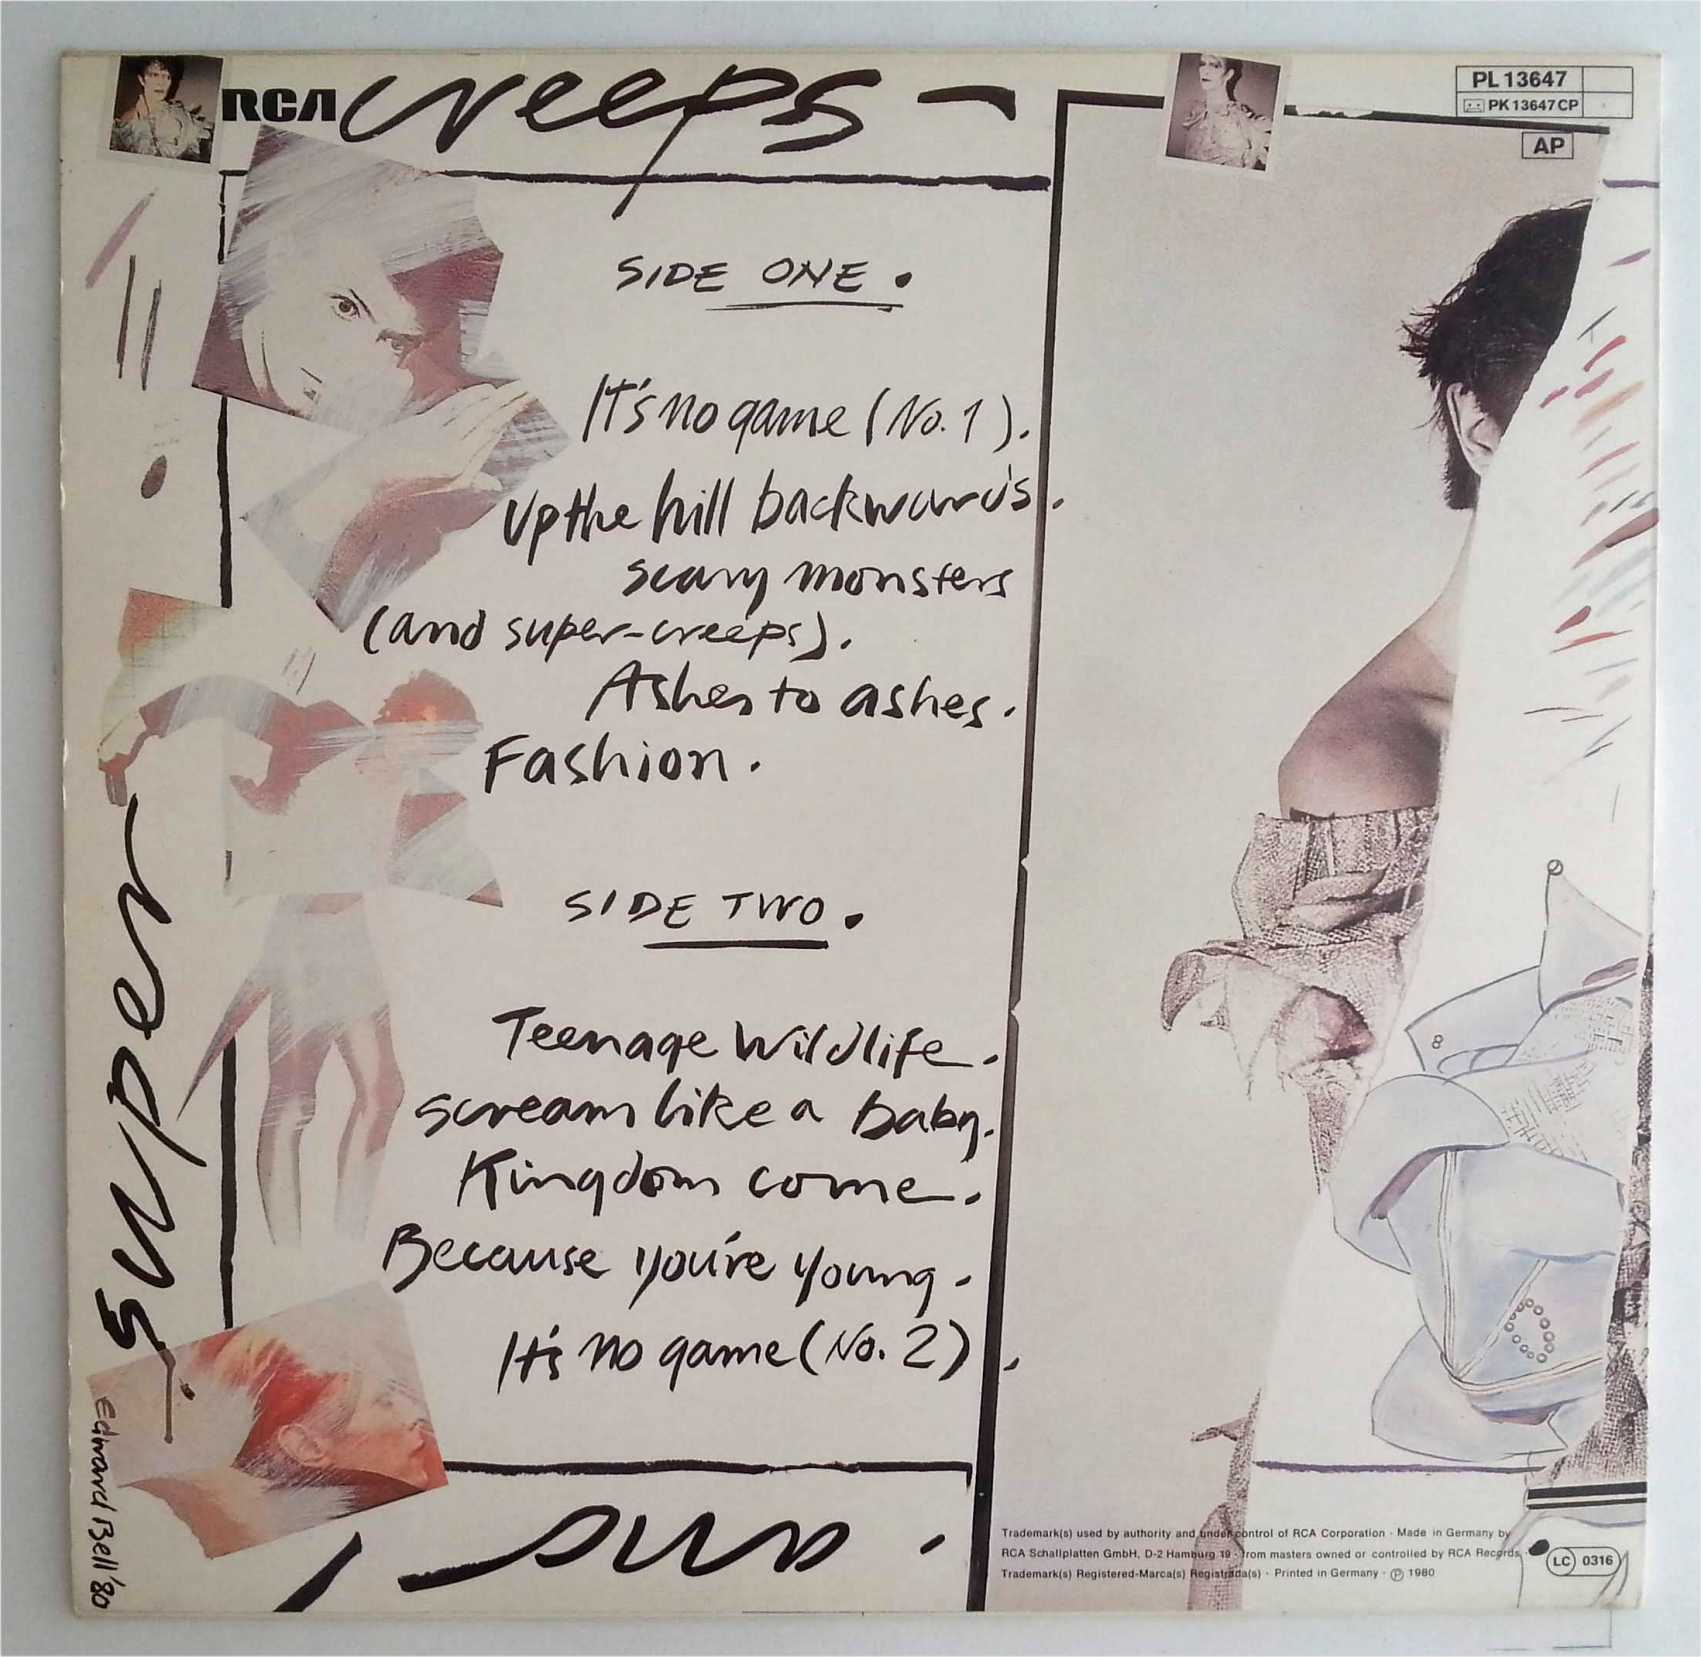 RCA creeps –
PL 13647
PK 13647 CP
AP
SIDE ONE.
It's no game (No. 1).
Up the hill backwards.
scary monsters
(and super-creeps).
Ashes to ashes.
Fashion.
SIDE TWO.
Teenage Wildlife.
scream like a baby.
Kingdom come.
Because you're young.
It's no game (No. 2).
super
and
Edward Bell '80
Trademark(s) used by authority and under control of RCA Corporation · Made in Germany by
RCA Schallplatten GmbH, D-2 Hamburg 19 · from masters owned or controlled by RCA Records
Trademark(s) Registered-Marca(s) Registrada(s) · Printed in Germany · Ⓟ 1980
LC 0316